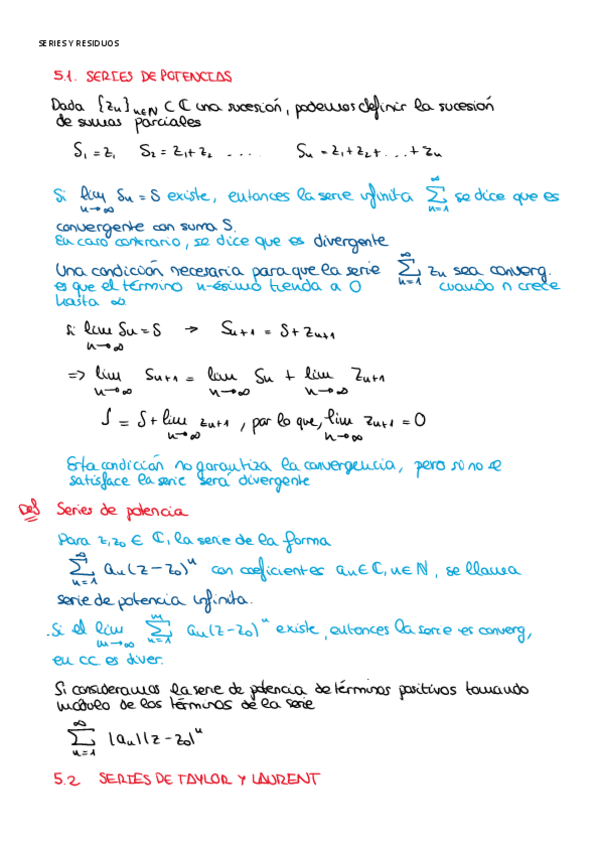 SERIES Y RESIDUOS
5.1. SERIES DE POTENCIAS
Dada {zn}n∈N ⊂ ℂ una sucesión, podemos definir la sucesión
de sumas parciales
S1 = z1 S2 = z1 + z2 .... Sn = z1 + z2 + ... + zn
Si lim n→∞ Sn = S existe, entonces la serie infinita ∞ Σ n=1 se dice que es
convergente con suma S.
En caso contrario, se dice que es divergente
Una condición necesaria para que la serie ∞ Σ n=1 zn sea converg.
es que el término n-ésimo tienda a 0 cuando n crece
hasta ∞
si lim n→∞ Sn = S → Sn+1 = S + zn+1
=> lim n→∞ Sn+1 = lim n→∞ Sn + lim n→∞ zn+1
S = S + lim n→∞ zn+1, por lo que, lim n→∞ zn+1 = 0
Esta condición no garantiza la convergencia, pero si no se
satisface la serie será divergente
Def Series de potencia
Para z, z0 ∈ ℂ, la serie de la forma
∞ Σ n=1 an(z - z0)^n con coeficientes an ∈ ℂ, n ∈ N, se llama
serie de potencia infinita.
. Si el lim m→∞ m Σ n=1 an(z - z0)^n existe, entonces la serie es converg,
en cc es diver.
Si consideramos la serie de potencia de términos positivos tomando
módulo de los términos de la serie
∞ Σ n=1 |an||z - z0|^n
5.2 SERIES DE TAYLOR Y LAURENT